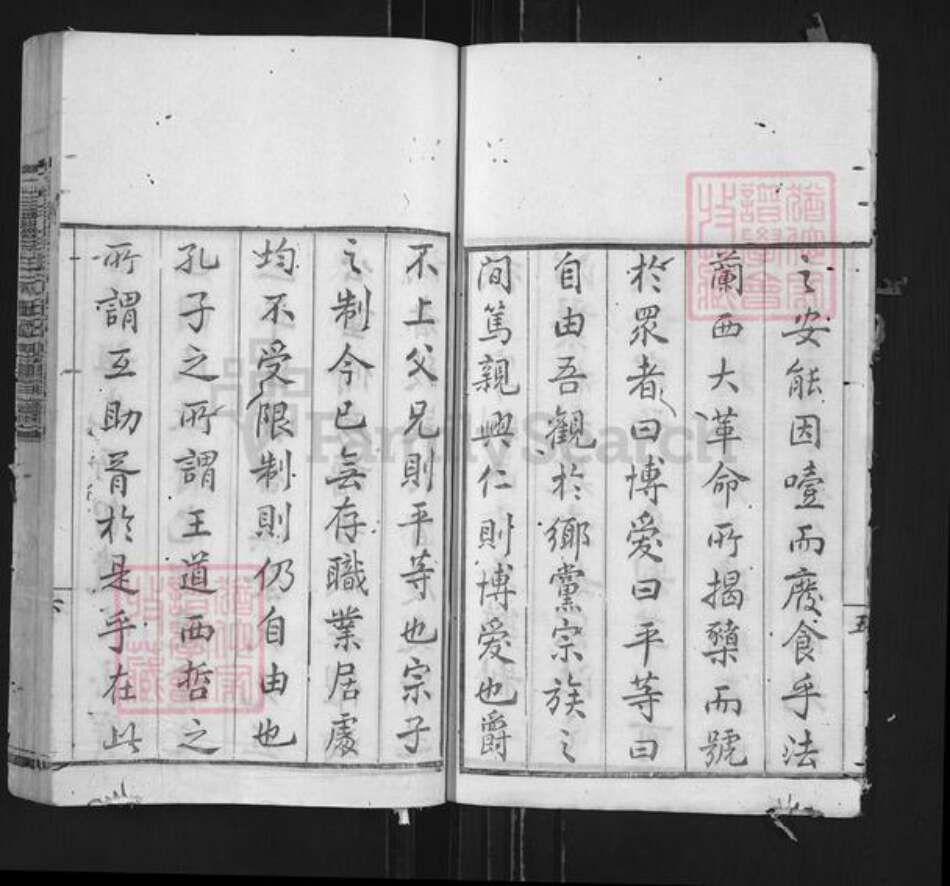 之安能因噎而廢食乎法
蘭西大革命所揭櫫而號
於眾者曰博愛曰平等曰
自由吾觀於鄉黨宗族之
間篤親興仁則博愛也爵
不上父兄則平等也宗子
之制今已無存職業居處
均不受限制則仍自由也
孔子之所謂王道西哲之
所謂互助胥於是乎在此
五
六
FamilySearch